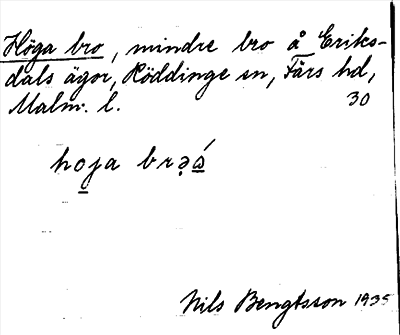 Höga bro, mindre bro å Eriks-
dals ägor, Röddinge sn, Färs hd,
Malm. l. 30
hoja
Nils Bengtsson 1935